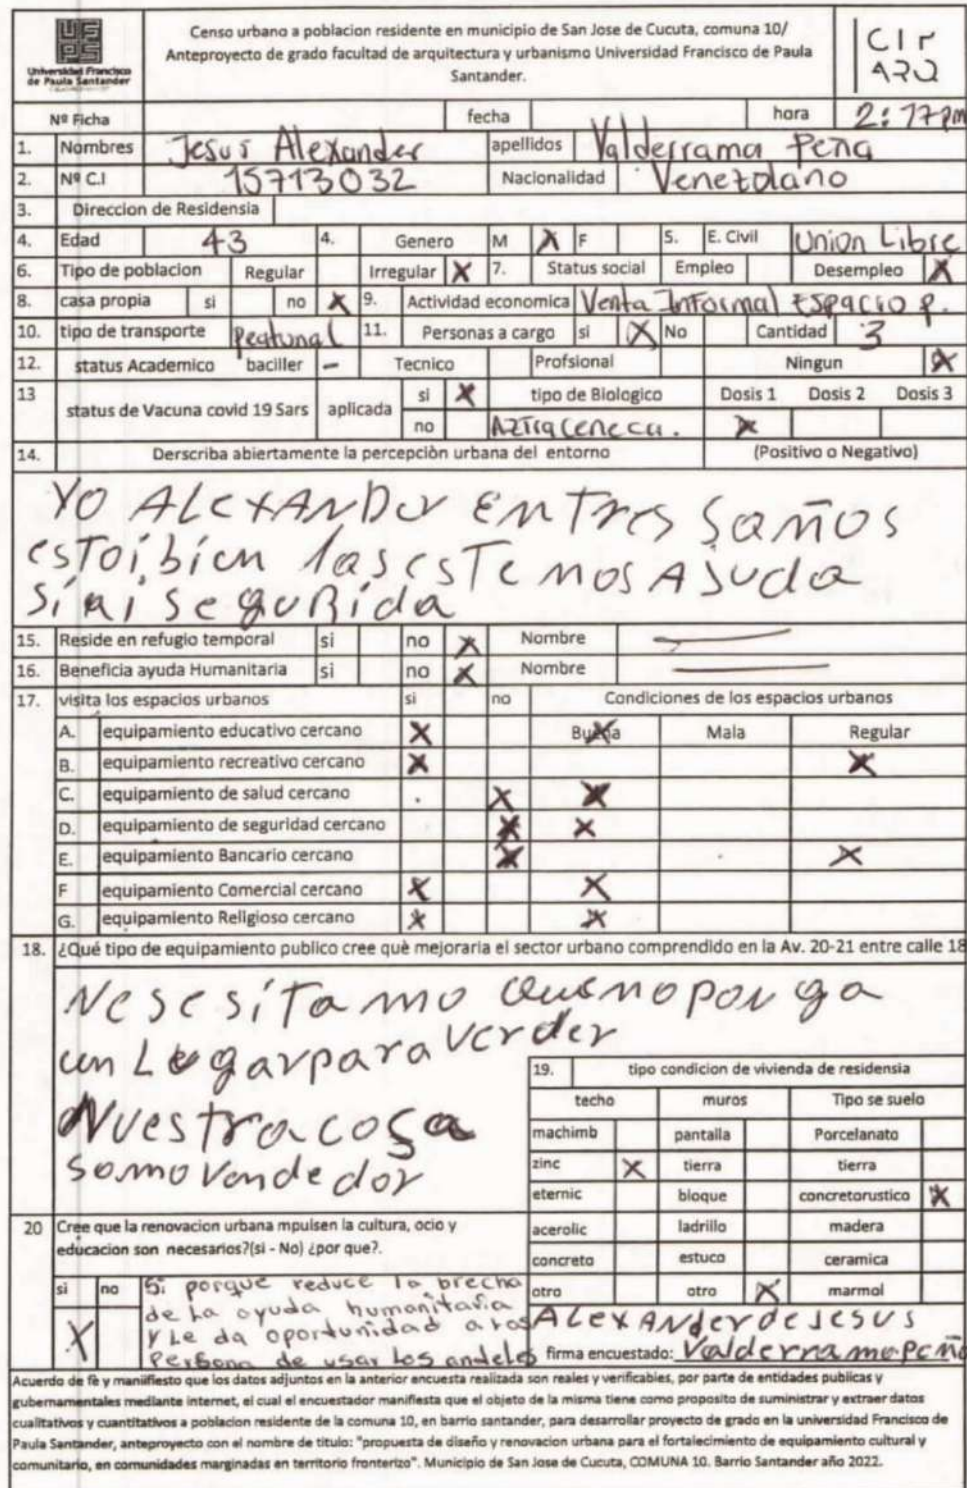 Universidad Francisco
de Paula Santander
Censo urbano a poblacion residente en municipio de San Jose de Cucuta, comuna 10/
Anteproyecto de grado facultad de arquitectura y urbanismo Universidad Francisco de Paula
Santander.
Nº Ficha fecha hora 2:17pm
1. Nombres Jesus Alexander apellidos Valderrama Peña
2. Nº C.I 15713032 Nacionalidad Venezolano
3. Direccion de Residensia
4. Edad 43 4. Genero M X F 5. E. Civil Union Libre
6. Tipo de poblacion Regular Irregular X 7. Status social Empleo Desempleo X
8. casa propia si no X 9. Actividad economica Venta Informal Espacio p.
10. tipo de transporte Peatunal 11. Personas a cargo si X No Cantidad 3
12. status Academico baciller - Tecnico Profsional Ningun X
13 status de Vacuna covid 19 Sars aplicada si X tipo de Biologico Dosis 1 Dosis 2 Dosis 3
no Aztraceneca. X
14. Derscriba abiertamente la percepciòn urbana del entorno (Positivo o Negativo)
YO ALEXANDER EN Tres Saños
esToi bien las esTe mos AJuda
Si ai seguRida
15. Reside en refugio temporal si no X Nombre
16. Beneficia ayuda Humanitaria si no X Nombre
17. visita los espacios urbanos si no Condiciones de los espacios urbanos
A. equipamiento educativo cercano X Buena X Mala Regular
B. equipamiento recreativo cercano X X
C. equipamiento de salud cercano X X
D. equipamiento de seguridad cercano X X
E. equipamiento Bancario cercano X X
F equipamiento Comercial cercano X X
G. equipamiento Religioso cercano X X
18. ¿Qué tipo de equipamiento publico cree què mejoraria el sector urbano comprendido en la Av. 20-21 entre calle 18
Nesesitamo que no ponga
un Lugar para verder
Nuestra cosa
somo vendedor
19. tipo condicion de vivienda de residensia
techo muros Tipo se suelo
machimb pantalla Porcelanato
zinc X tierra tierra
eternic bloque concretorustico X
acerolic ladrillo madera
concreto estuco ceramica
otro otro X marmol
20 Cree que la renovacion urbana mpulsen la cultura, ocio y
educacion son necesarios?(si - No) ¿por que?.
si X no
Si porque reduce la brecha
de La ayuda humanitaria
y Le da oportunidad a las
Persona de usar Los andeles
ALexANder de Jesus
firma encuestado: Valderrama peña
Acuerdo de fè y maniifiesto que los datos adjuntos en la anterior encuesta realizada son reales y verificables, por parte de entidades publicas y
gubernamentales mediante internet, el cual el encuestador manifiesta que el objeto de la misma tiene como proposito de suministrar y extraer datos
cualitativos y cuantitativos a poblacion residente de la comuna 10, en barrio santander, para desarrollar proyecto de grado en la universidad Francisco de
Paula Santander, anteproyecto con el nombre de titulo: "propuesta de diseño y renovacion urbana para el fortalecimiento de equipamiento cultural y
comunitario, en comunidades marginadas en territorio fronterizo". Municipio de San Jose de Cucuta, COMUNA 10. Barrio Santander año 2022.